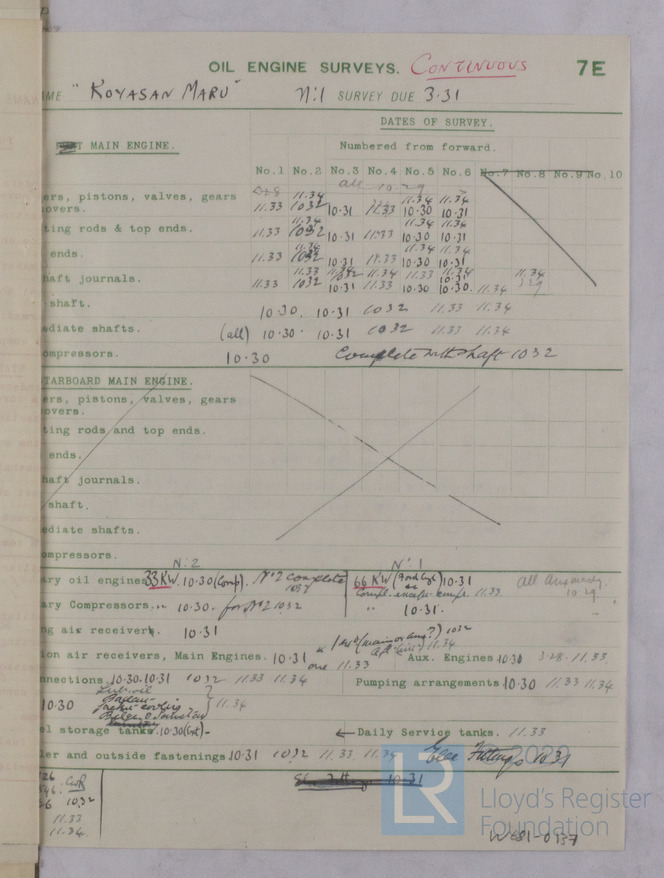 OIL ENGINE SURVEYS. CONTINUOUS 7E
ME "KOYASAN MARU" SURVEY DUE 3.31
DATES OF SURVEY.
MAIN ENGINE. Numbered from forward.
No.1 No.2 No.3 No.4 No.5 No.6 No.7 No.8 No.9 No.10
all 10.29
11.34 11.34 11.34
ers, pistons, valves, gears
overs. 11.33 1032 10.31 11.33 10.30 10.31
11.34 11.34 11.34
ting rods & top ends. 11.33 1032 10.31 11.33 10.30 10.31
11.34 11.34 11.34
ends. 11.33 1032 10.31 11.33 10.30 10.31
11.33 1032 11.34 11.33 11.34 11.34
haft journals. 11.33 1032 10.31 11.33 10.30 10.30. 11.34
shaft. 10.30. 10.31 1032 11.33 11.34
ediate shafts. (all) 10.30. 10.31 1032 11.33 11.34
ompressors. 10.30 Complete with shaft 1032
TARBOARD MAIN ENGINE.
ers, pistons, valves, gears
overs.
ting rods and top ends.
ends.
haft journals.
shaft.
ediate shafts.
ompressors.
No.2 No.1
ary oil engines 33 KW. 10.30 (Comp). No 2 complete 66 KW 10.31 all
Compl. except comp. 11.33 10.29
ary Compressors. 10.30. for No 2 1032 " 10.31.
ng air receivers. 10.31
ion air receivers, Main Engines. 10.31 one 11.33 Aux. Engines 10.30 3.28. 11.33
nnections 10.30.10.31 1032 11.33 11.34 Pumping arrangements 10.30 11.33 11.34
10.30 Lub. oil
Jacket cooling } 11.34
el storage tanks. 10.30 ← Daily Service tanks. 11.33
ler and outside fastenings 10.31 1032 11.33 11.34 Elec Fittings 10.31
10.31
1032
11.33
11.34
LR
2020
Lloyd's Register
Foundation
W681-0137